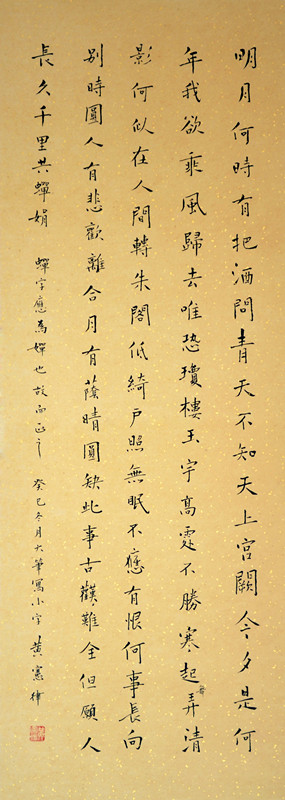 明月何時有把酒問青天不知天上宮闕今夕是何
年我欲乘風歸去唯恐瓊樓玉宇高處不勝寒起舞弄清
影何似在人間轉朱閣低綺戶照無眠不應有恨何事長向
別時圓人有悲歡離合月有蔭晴圓缺此事古歡難全但願人
長久千里共蟬娟 蟬字應為嬋也故而正之 癸巳冬月大筆寫小字 黃憲律